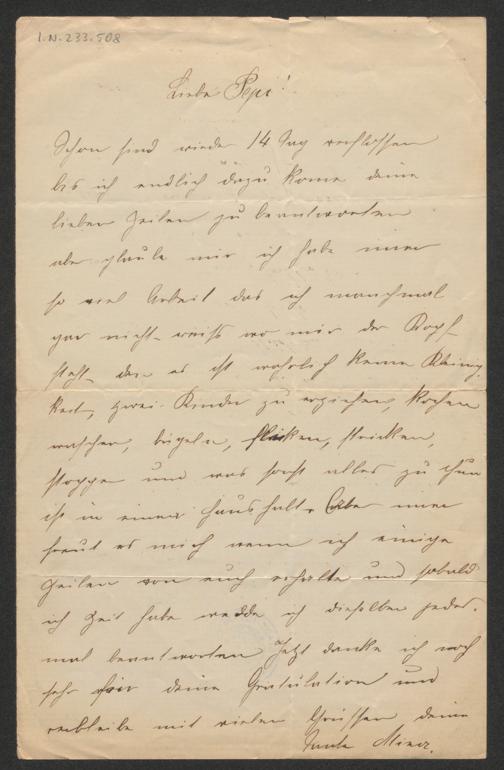 I.N. 233.508
Liebe Pepi!
Schon sind wieder 14 Tag verflossen
bis ich endlich dazu kome deine
lieben Zeilen zu beantworten
aber glaube mir ich habe imer
so viel Arbeit das ich manchmal
gar nicht weiß wo mir der Kopf
steht, den es ist wahrlich keine Kleinig
keit, zwei Kinder zu erziehen, kochen
waschen, bügeln, flicken, stricken,
stoppen und was sonst alles zu thun
ist in einem Haushalt. Aber imer
freut es mich wenn ich einige
Zeilen von euch erhalte und sobald
ich Zeit habe werde ich dieselben jedes-
mal beantworten Jetzt danke ich noch
sehr für deine Gratulation und
verbleibe mit vielen Grüssen deine
Tante Mina.